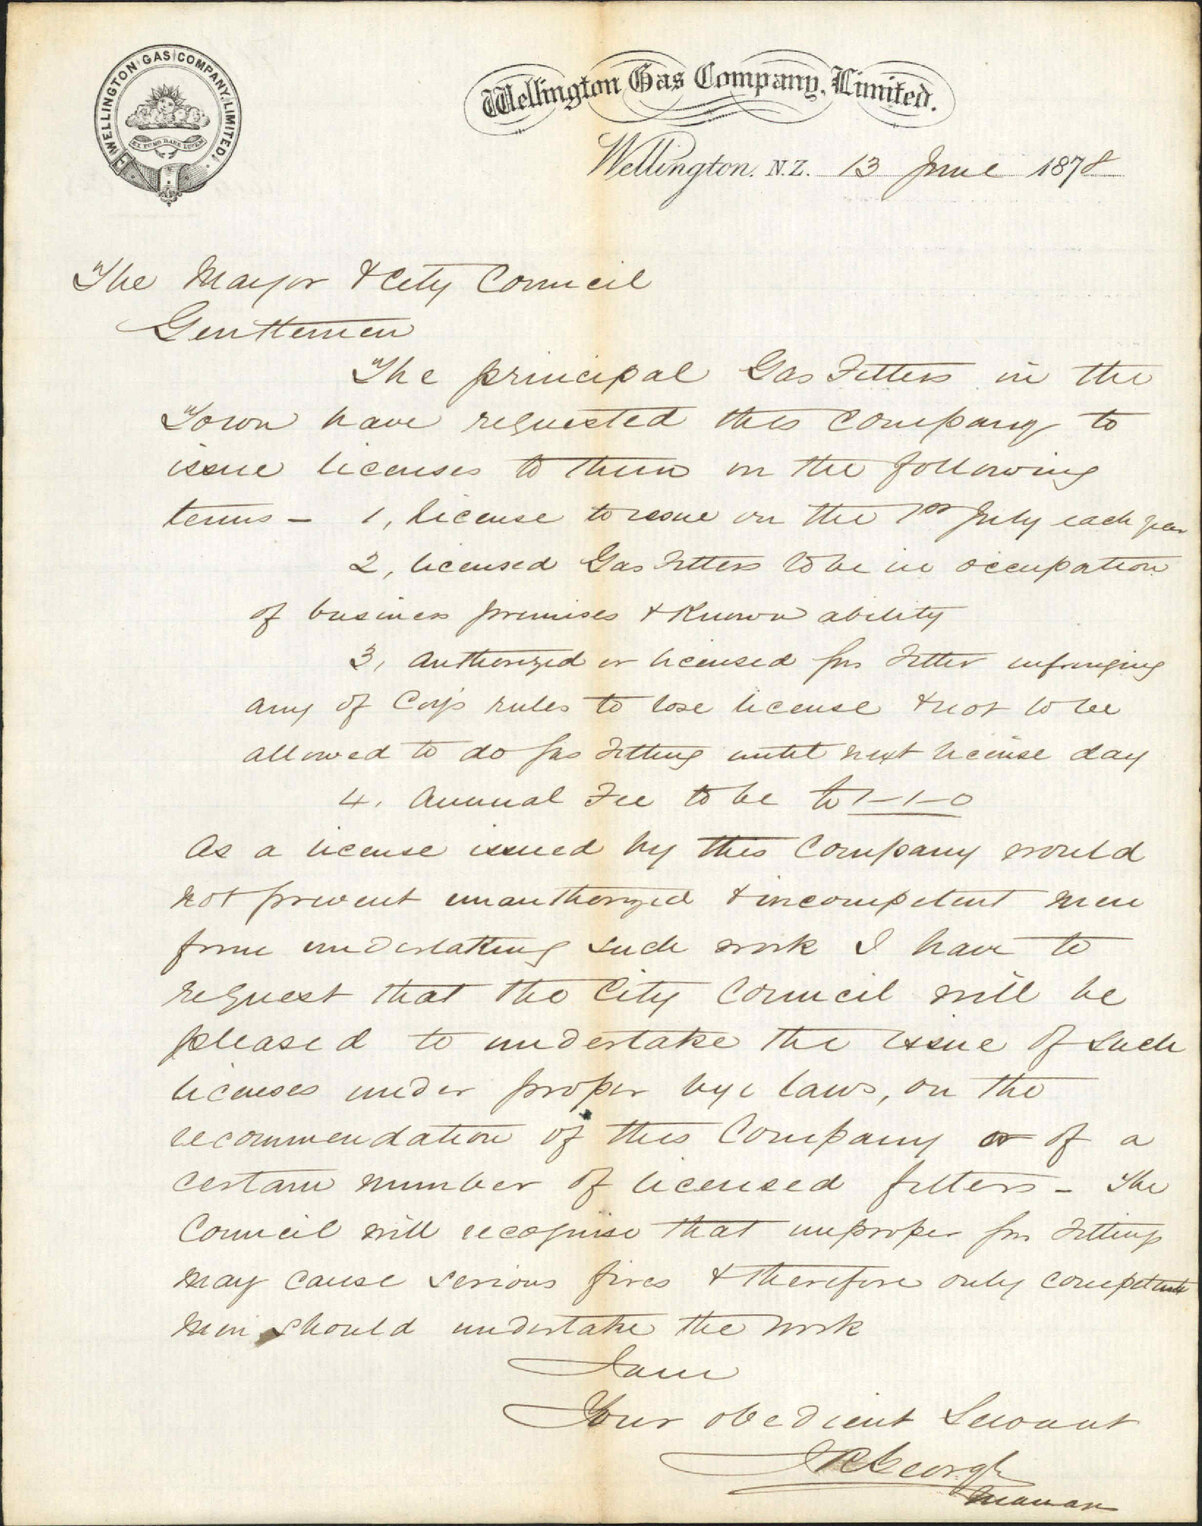 WELLINGTON GAS COMPANY, LIMITED.
EX FUMO DARE LUCEM
Wellington Gas Company, Limited.
Wellington. N.Z. 13 June 1878
The Mayor & City Council
Gentlemen
The principal Gas Fitters in the
Town have requested this Company to
issue licenses to them on the following
terms - 1, License to issue on the 1st July each year
2, licensed Gas Fitters to be in occupation
of business premises & known ability
3, Authorized or licensed gas fitter infringing
any of Coy's rules to lose license & not to be
allowed to do gas fitting until next license day
4. Annual Fee to be 1-1-0
As a license issued by this Company would
not prevent unauthorized & incompetent men
from undertaking such work I have to
request that the City Council will be
pleased to undertake the issue of such
licenses under proper bye laws, on the
recommendation of this Company or of a
certain number of licensed fitters - The
Council will recognise that improper gas fitting
may cause serious fires & therefore only competent
men should undertake the work
I am
Your obedient Servant
J R George
Manar